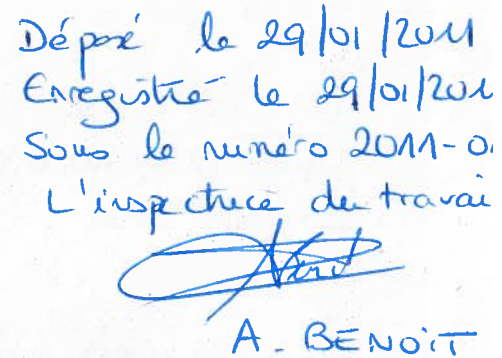 Déposé le 29/01/2011
Enregistré le 29/01/201
Sous le numéro 2011-0
L'inspectrice du travai
A. BENOIT